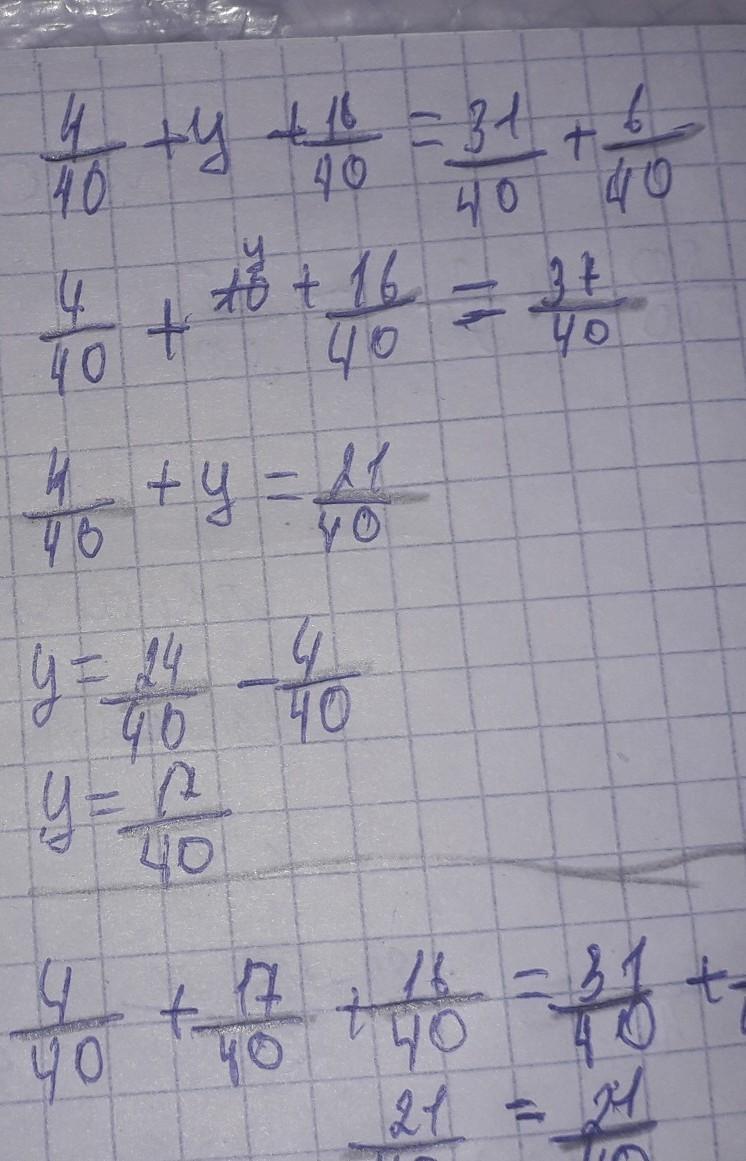 4/40 + y + 16/40 = 31/40 + 6/40
4/40 + y + 16/40 = 37/40
4/40 + y = 21/40
y = 24/40 - 4/40
y = 17/40
4/40 + 17/40 + 16/40 = 31/40 +
21 = 21